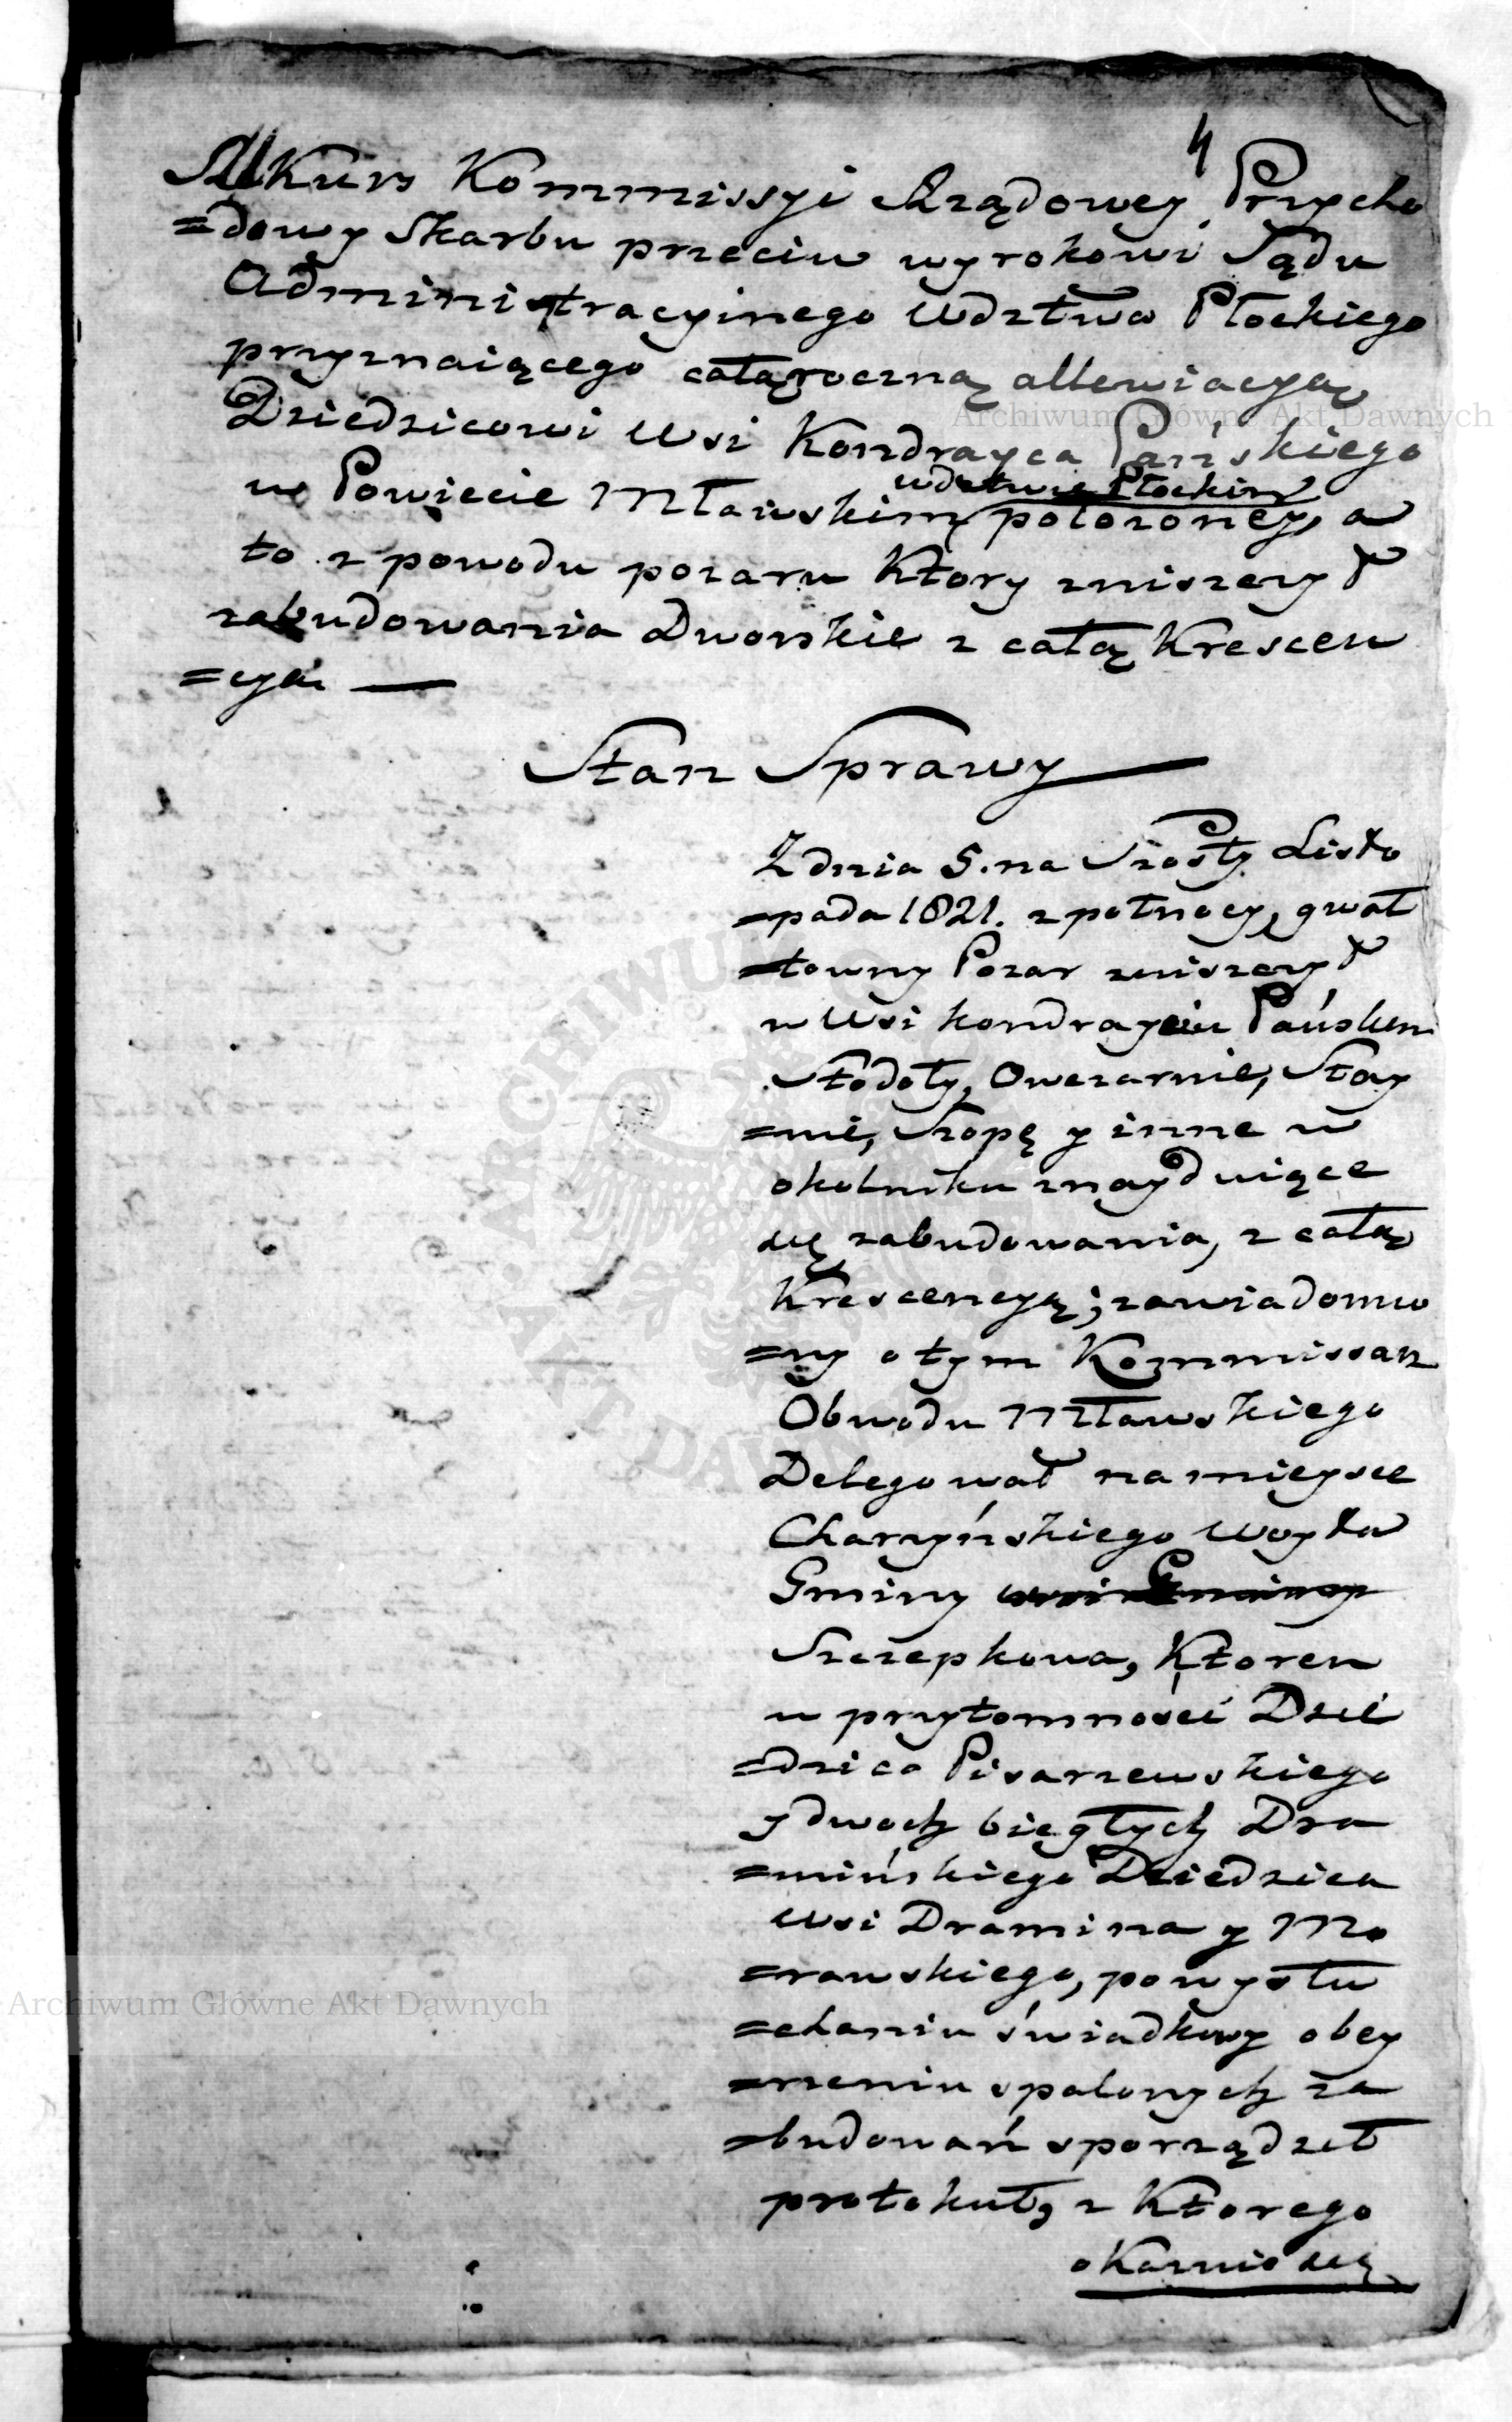 4
Rekurs Kommissyi Rządowey Przycho
=dowy Skarbu przeciw wyrokowi Sądu
Administracyinego Wdztwa Płockiego
przyznaiącego całąroczną allewiacyą
Dziedzicowi Wsi Kondrayca Pańskiego
wdztwie Płockim
w Powiecie Mławskim położoney, a
to z powodu pożaru Który zniszczył
zabudowania Dworskie z całą Krescen
=cyą. —
Stan Sprawy
Z dnia 5. na Szosty Listo
=pada 1821. z połnocy, gwał
=towny Pożar zniszczył
w Wsi kondraycu Pańskim
Stodoły, Owczarnie, Stay
=nie, Szopę y inne w
okolniku znayduiące
się zabudowania, z całą
Krescencyą; zawiadomio
=ny o tym Kommissarz
Obwodu Mławskiego
Delegował na mieysce
Charzyńskiego Woyta
Gminy
Szczepkowa, Ktoren
w przytomności Dzie
=dzica Pisarzewskiego
y dwoch biegłych Dra
=mińskiego Dziedzica
Wsi Dramina y Mo
=rawskiego, po wysłu
=chaniu świadkow y obey
=rzeniu spalonych za
=budowań sporządził
protokuł, z Ktorego
okazuie się
Archiwum Główne Akt Dawnych
Archiwum Główne Akt Dawnych